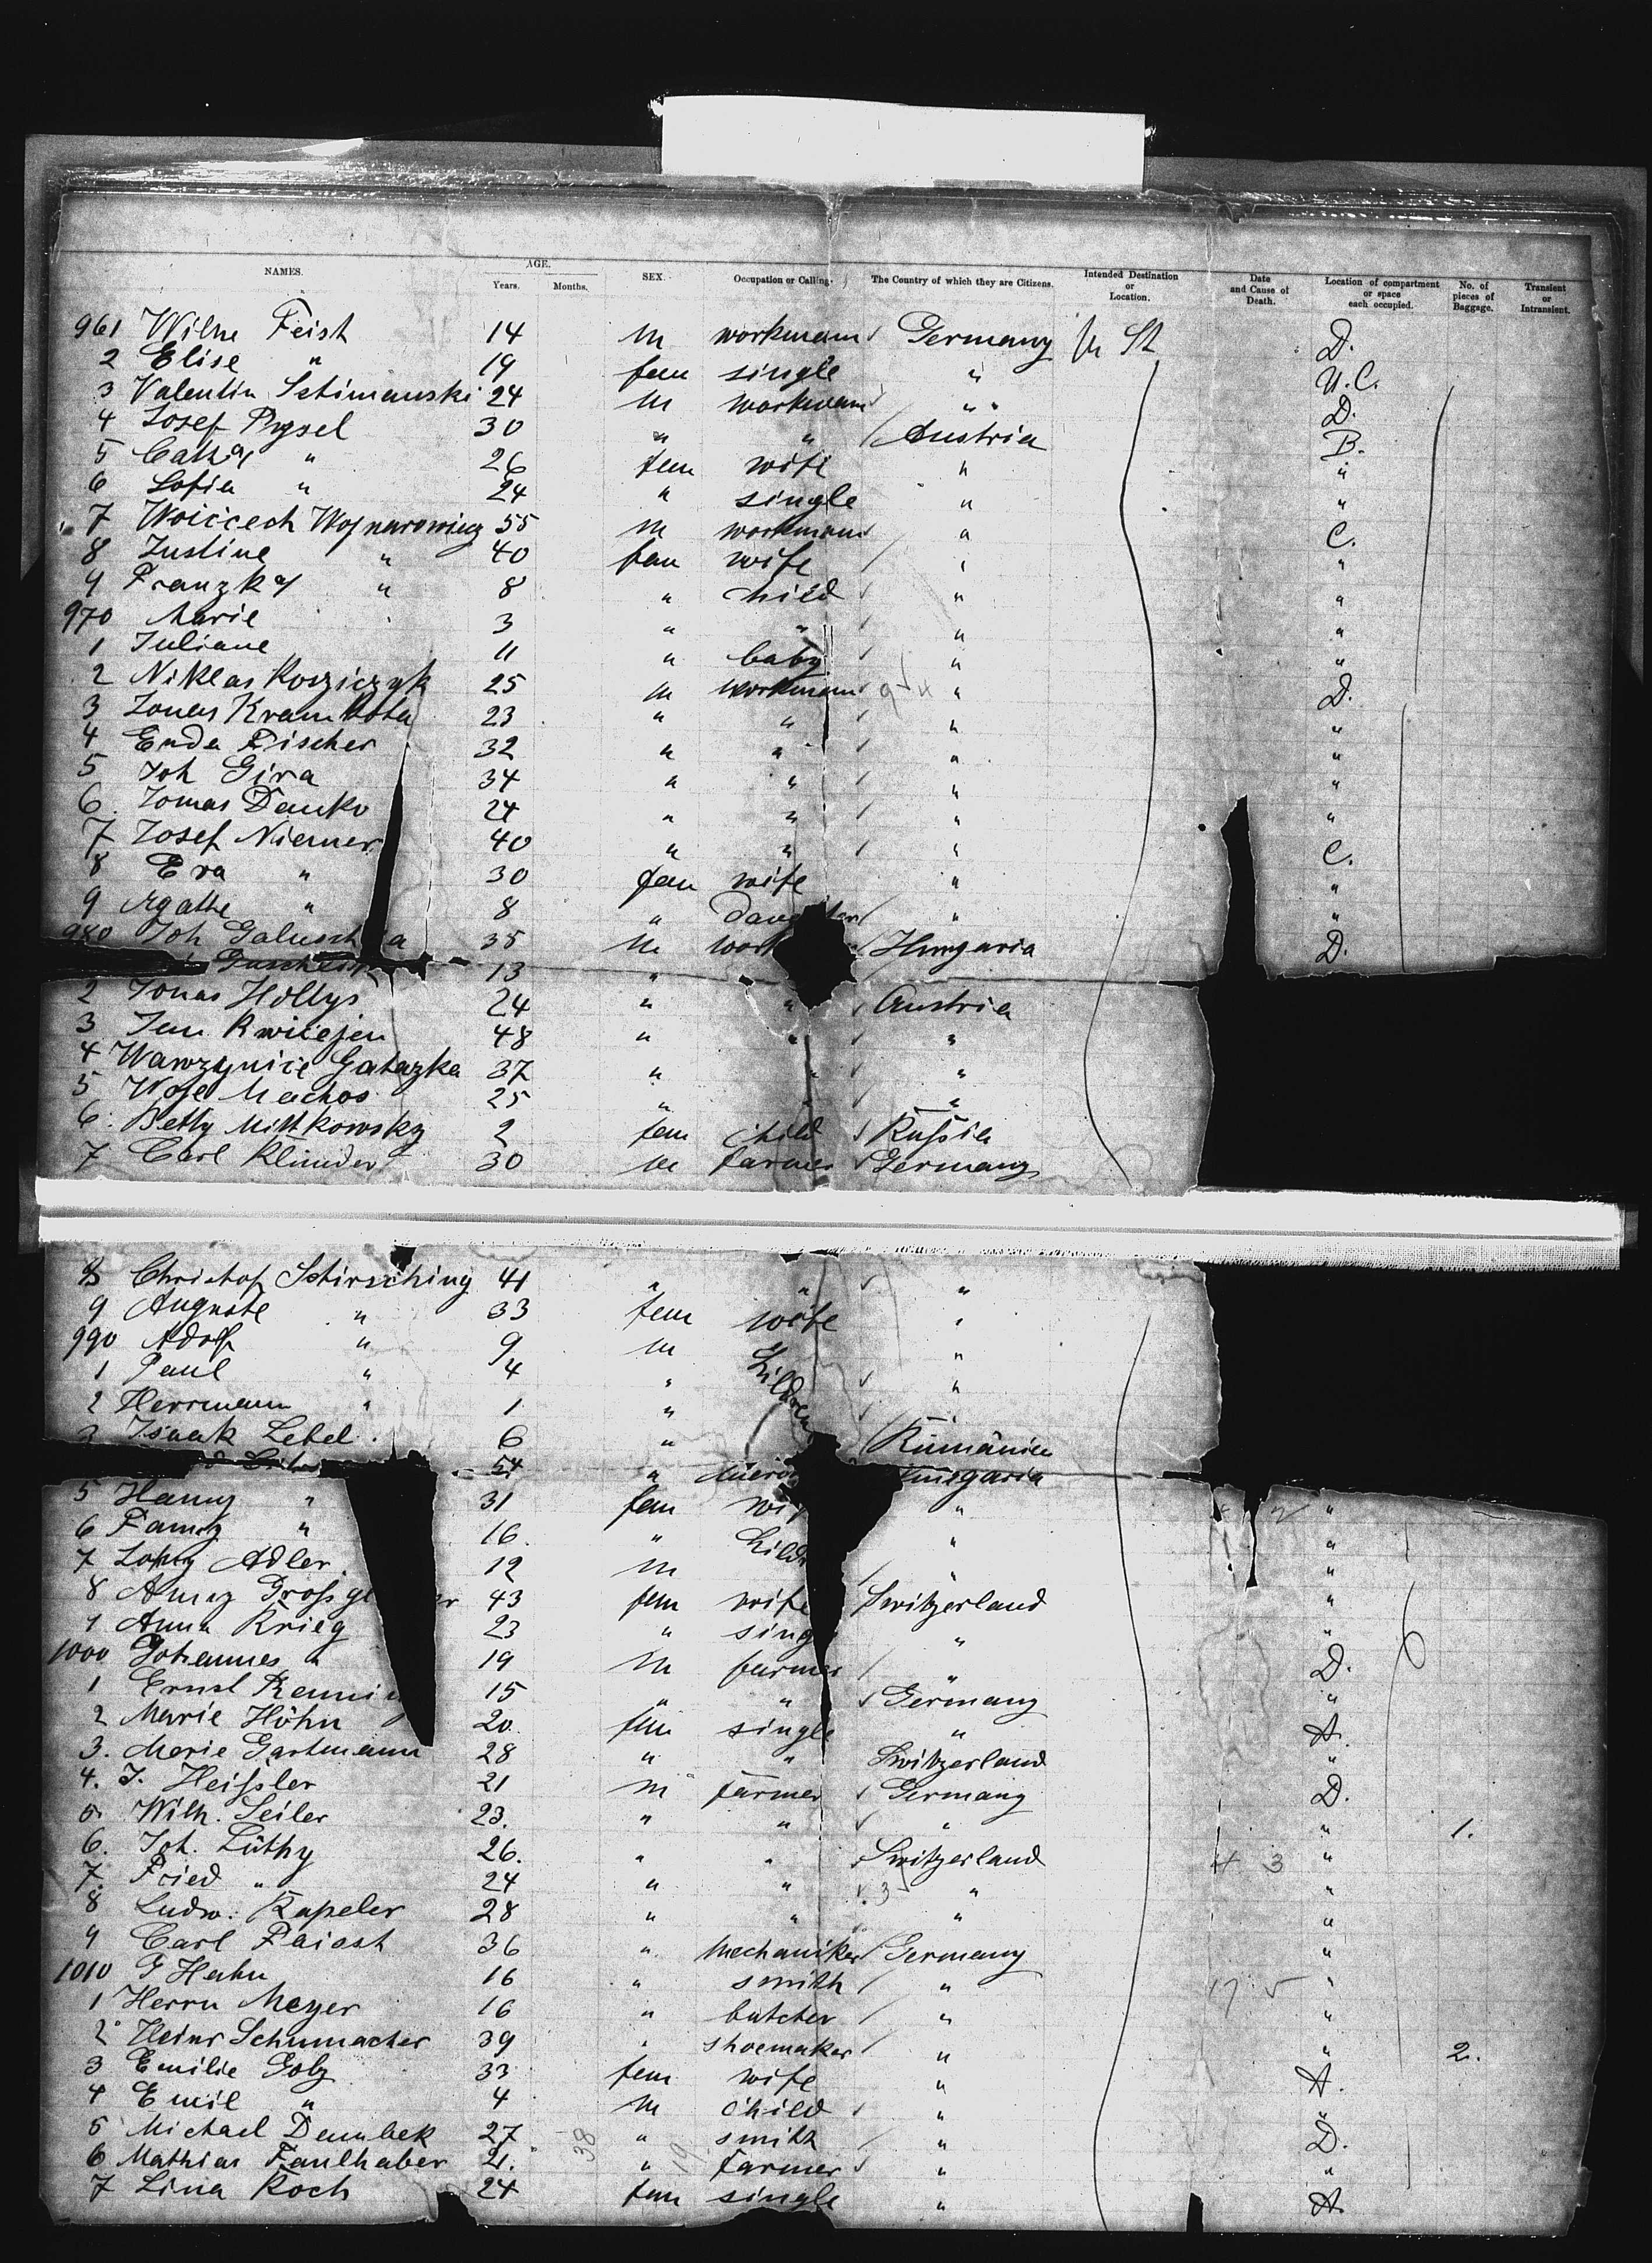 NAMES. AGE. Years. Months. SEX. Occupation or Calling. The Country of which they are Citizens. Intended Destination or Location. Date and Cause of Death. Location of compartment or space each occupied. No. of pieces of Baggage. Transient or Intransient.
961 Wilhe Feist 14 m workmann Germany U St D.
2 Elise " 19 fem single " U.C.
3 Valentin 24 m workmann " " D.
4 Josef Prysel 30 " " Austria B.
5 " 26 fem wife " "
6 Sofia " 24 " single " "
7 Woicech Wojnarowicz 55 m workmann " C.
8 Justine " 40 fem wife " "
9 Franzka " 8 " child " "
970 Marie 3 " " " "
1 Juliane 11 " baby " "
2 Niklas Kosziczyk 25 m workmann " D.
3 Jonas 23 " " " "
4 Enda Fischer 32 " " " "
5 Joh Gira 34 " " " "
6. Tomas Danko 24 " " " "
7 Josef Niemer 40 " " " C.
8 Eva " 30 fem wife " "
9 Agathe " 8 " " "
980 Joh 35 m Hungaria D.
13 "
2 Jonas Hollys 24 " " Austria
3 Jan 48 " " "
4 Gatazka 37 " " "
5 Machos 25 " " "
6. Betty Mittkowsky 2 fem child Russia
7 Carl Klünder 30 m farmer Germany
8 Christof Schirsching 41 " " "
9 Auguste " 33 fem wife "
990 Adolf " 9 m Children "
1 Paul " 4 " "
2 Herrmann " 1 "
3 Isaak Lebel. 6 " Rumänien
54 "
5 Hanny " 31 fem " "
6 Fanny " 16. " " "
7 Adler. 12 m " "
8 43 fem wife Switzerland "
9 Anna Krieg 23 " " "
1000 Johannes " 19 m farmer " D.
1 Ernst 15 " " Germany "
2 Marie Höhn 20. fem single " A.
3. Marie Gartmann 28 " " Switzerland "
4. J. Heissler 21 m farmer Germany D.
5. Wilh. Seiler 23. " " " " 1.
6. Joh. Lüthy 26. " " Switzerland 4 3 "
7. Fried " 24 " " 3 " "
8 Ludw. Kapeler 28 " " " "
9 Carl Paiast 36 " mechaniker Germany "
1010 G Hahn 16 " smith " 17 5 "
1 Herrn Meyer 16 " butcher " "
2 Heinr Schumacher 39 " shoemaker " " 2.
3 Emilie Golz 33 fem wife " A.
4 Emil " 4 m child " "
5 Michael Dembek 27 38 " 19 smith " D.
6 Mathias Faulhaber 21. " farmer " "
7 Lina Koch 24 fem single " A.